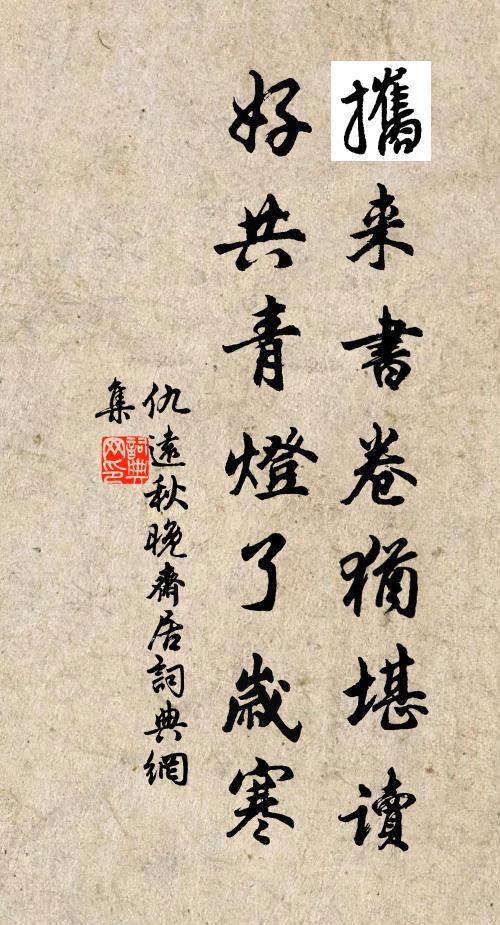 攜来書卷猶堪讀
好共青燈了歲寒
仇遠秋晚齋居詞典網
集
詞典
网印